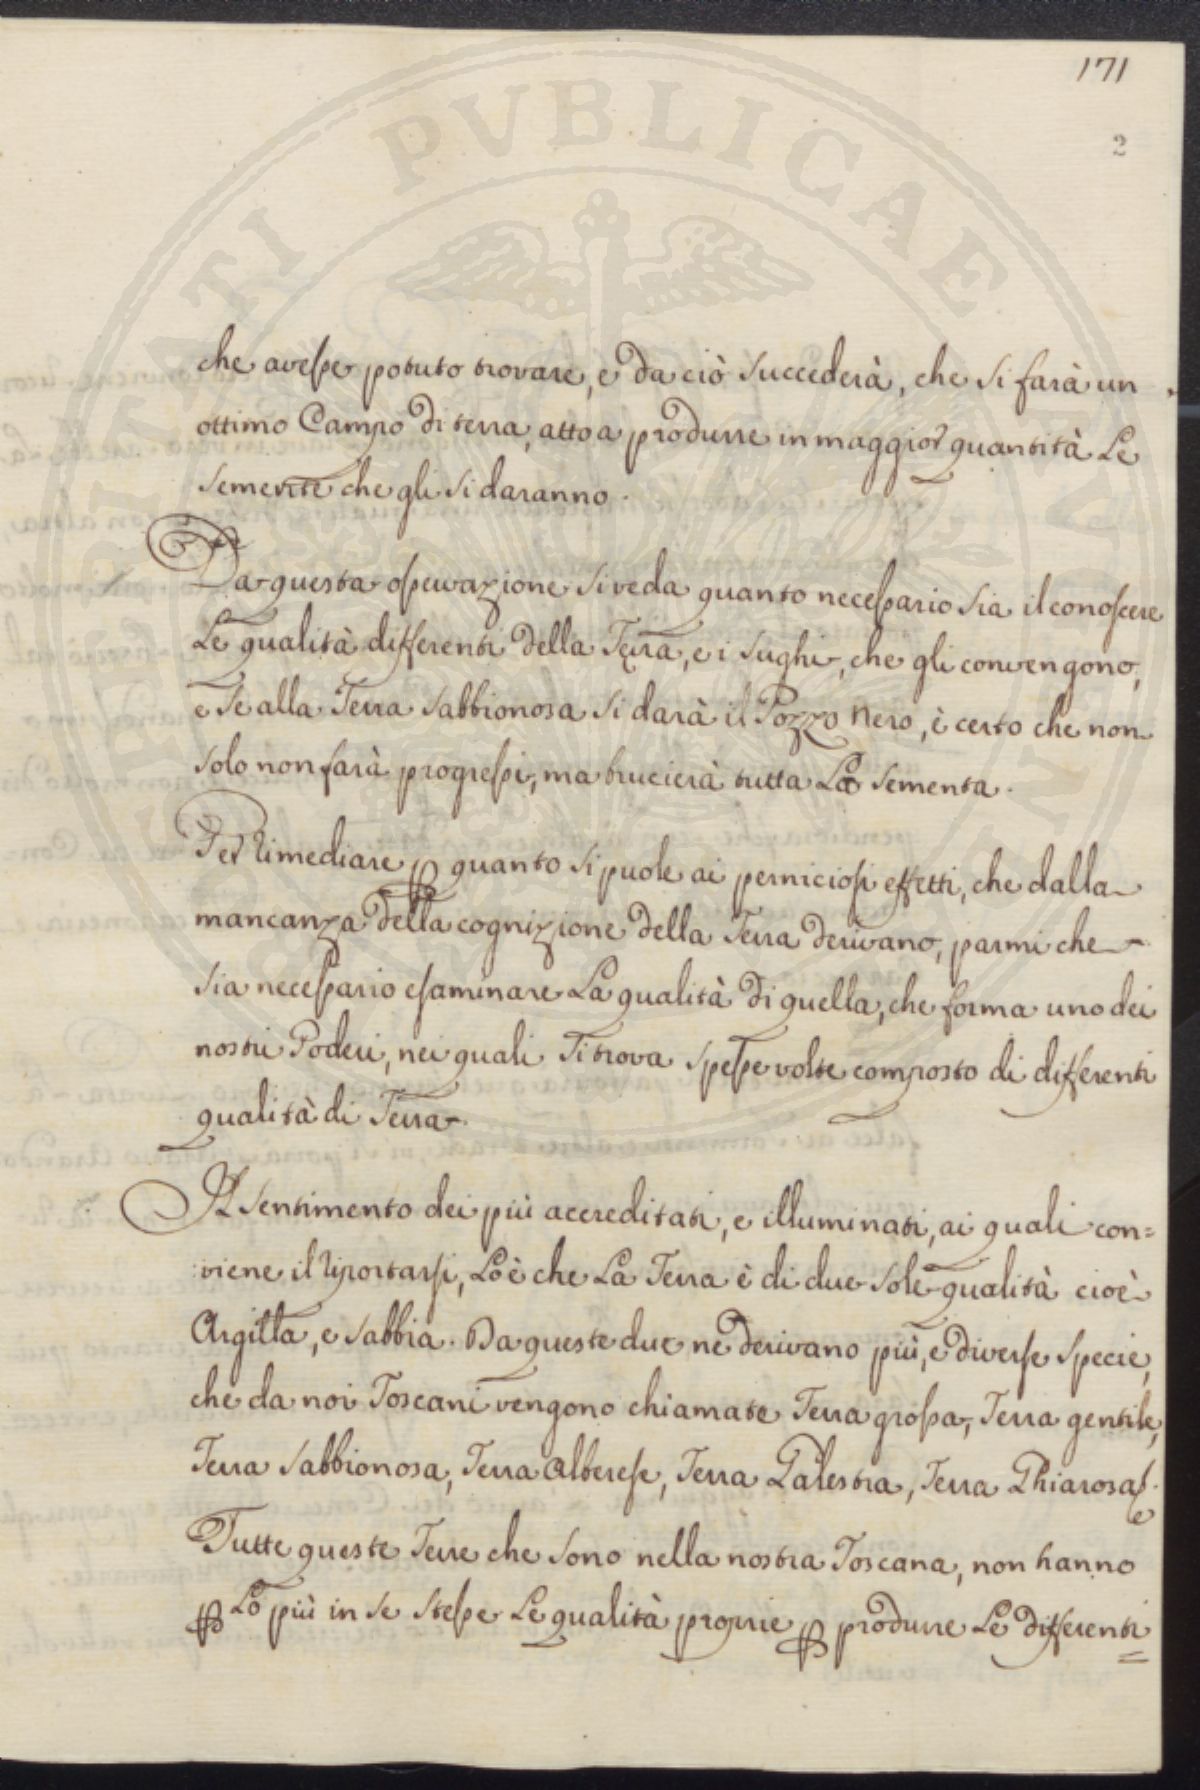 171
2
che avesse potuto trovare, e da ciò succederà, che si farà un
ottimo Campo di terra, atto a produrre in maggior quantità Le
semente che gli si daranno.
Da questa operazione si veda quanto necessario sia il conoscere
Le qualità differenti della Terra, e i sughi, che gli convengono,
e se alla Terra sabbionosa si darà il Pozzo nero, è certo che non
solo non farà progressi, ma brucierà tutta La sementa.
Per rimediare p quanto si puole ai perniciosi effetti, che dalla
mancanza della cognizione della Terra derivano, parmi che
sia necessario esaminare La qualità di quella, che forma uno dei
nostri Poderi, nei quali si trova spesse volte composto di differenti
qualità di Terra.
Il sentimento dei più accreditati, e illuminati, ai quali con=
viene il riportarsi, Lo è che La Terra è di due sole qualità cioè
Argilla, e sabbia. Da queste due ne derivano più, e diverse specie,
che da noi Toscani vengono chiamate Terra grossa, Terra gentile,
Terra sabbionosa, Terra Alberese, Terra Galestra, Terra Ghiarosa &.
e
Tutte queste Terre che sono nella nostra Toscana, non hanno
p Lo più in se stesse Le qualità proprie p produrre Le differenti
PVBLICAE